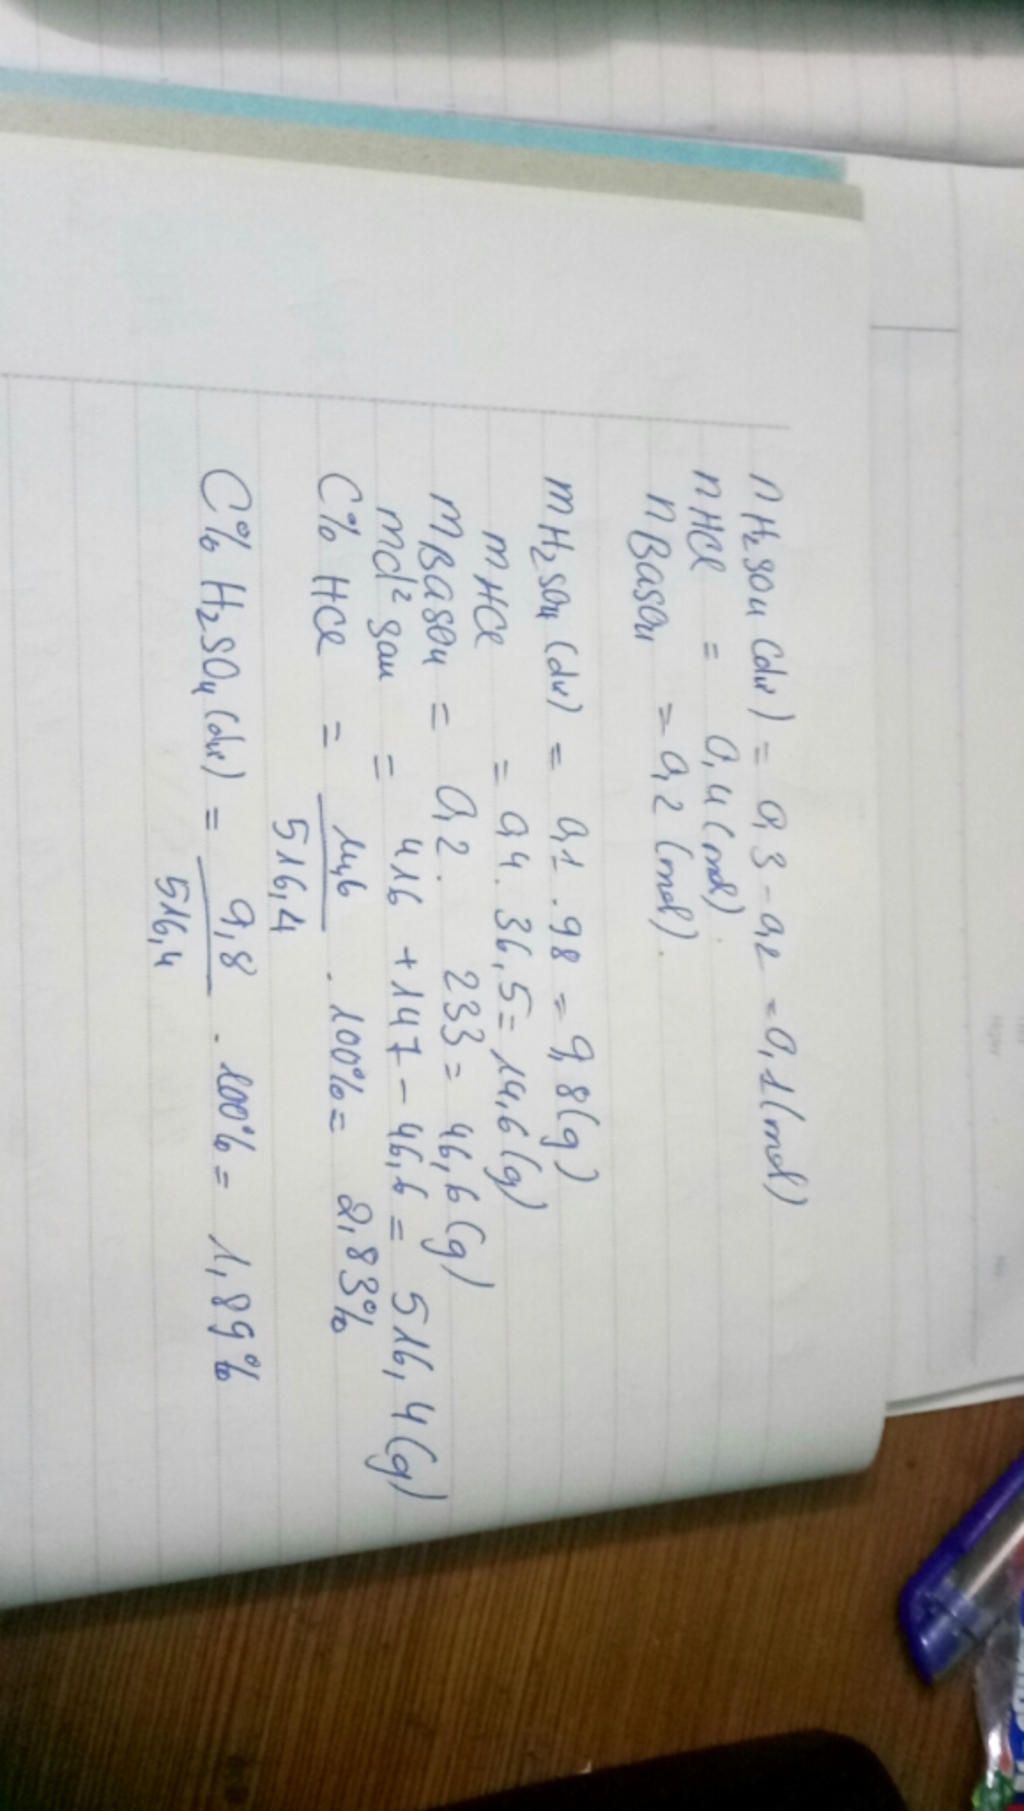 nH₂SO₄ (dư) = 0,3 - 0,2 = 0,1 (mol)
nHCl = 0,4 (mol)
nBaSO₄ = 0,2 (mol).
mH₂SO₄ (dư) = 0,1 . 98 = 9,8 (g)
mHCl = 0,4 . 36,5 = 14,6 (g)
mBaSO₄ = 0,2 . 233 = 46,6 (g)
md² sau = 416 + 147 - 46,6 = 516,4 (g)
C% HCl = 14,6/516,4 . 100% = 2,83%
C% H₂SO₄ (dư) = 9,8/516,4 . 100% = 1,89%